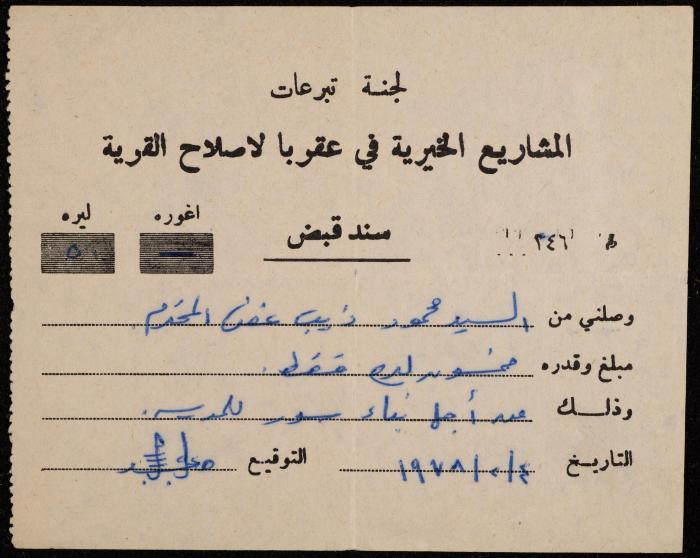 لجنة تبرعات
المشاريع الخيرية في عقوبا لاصلاح القرية
اغوره ليره
سند قبض
٣٤٦
— ٥٠
وصلني من السيد محمود ذيب المحترم
مبلغ وقدره خمسون ليره فقط.
وذلك من أجل بناء سور للمدرسه.
التاريخ ١٩٧٨/٠/٤ التوقيع